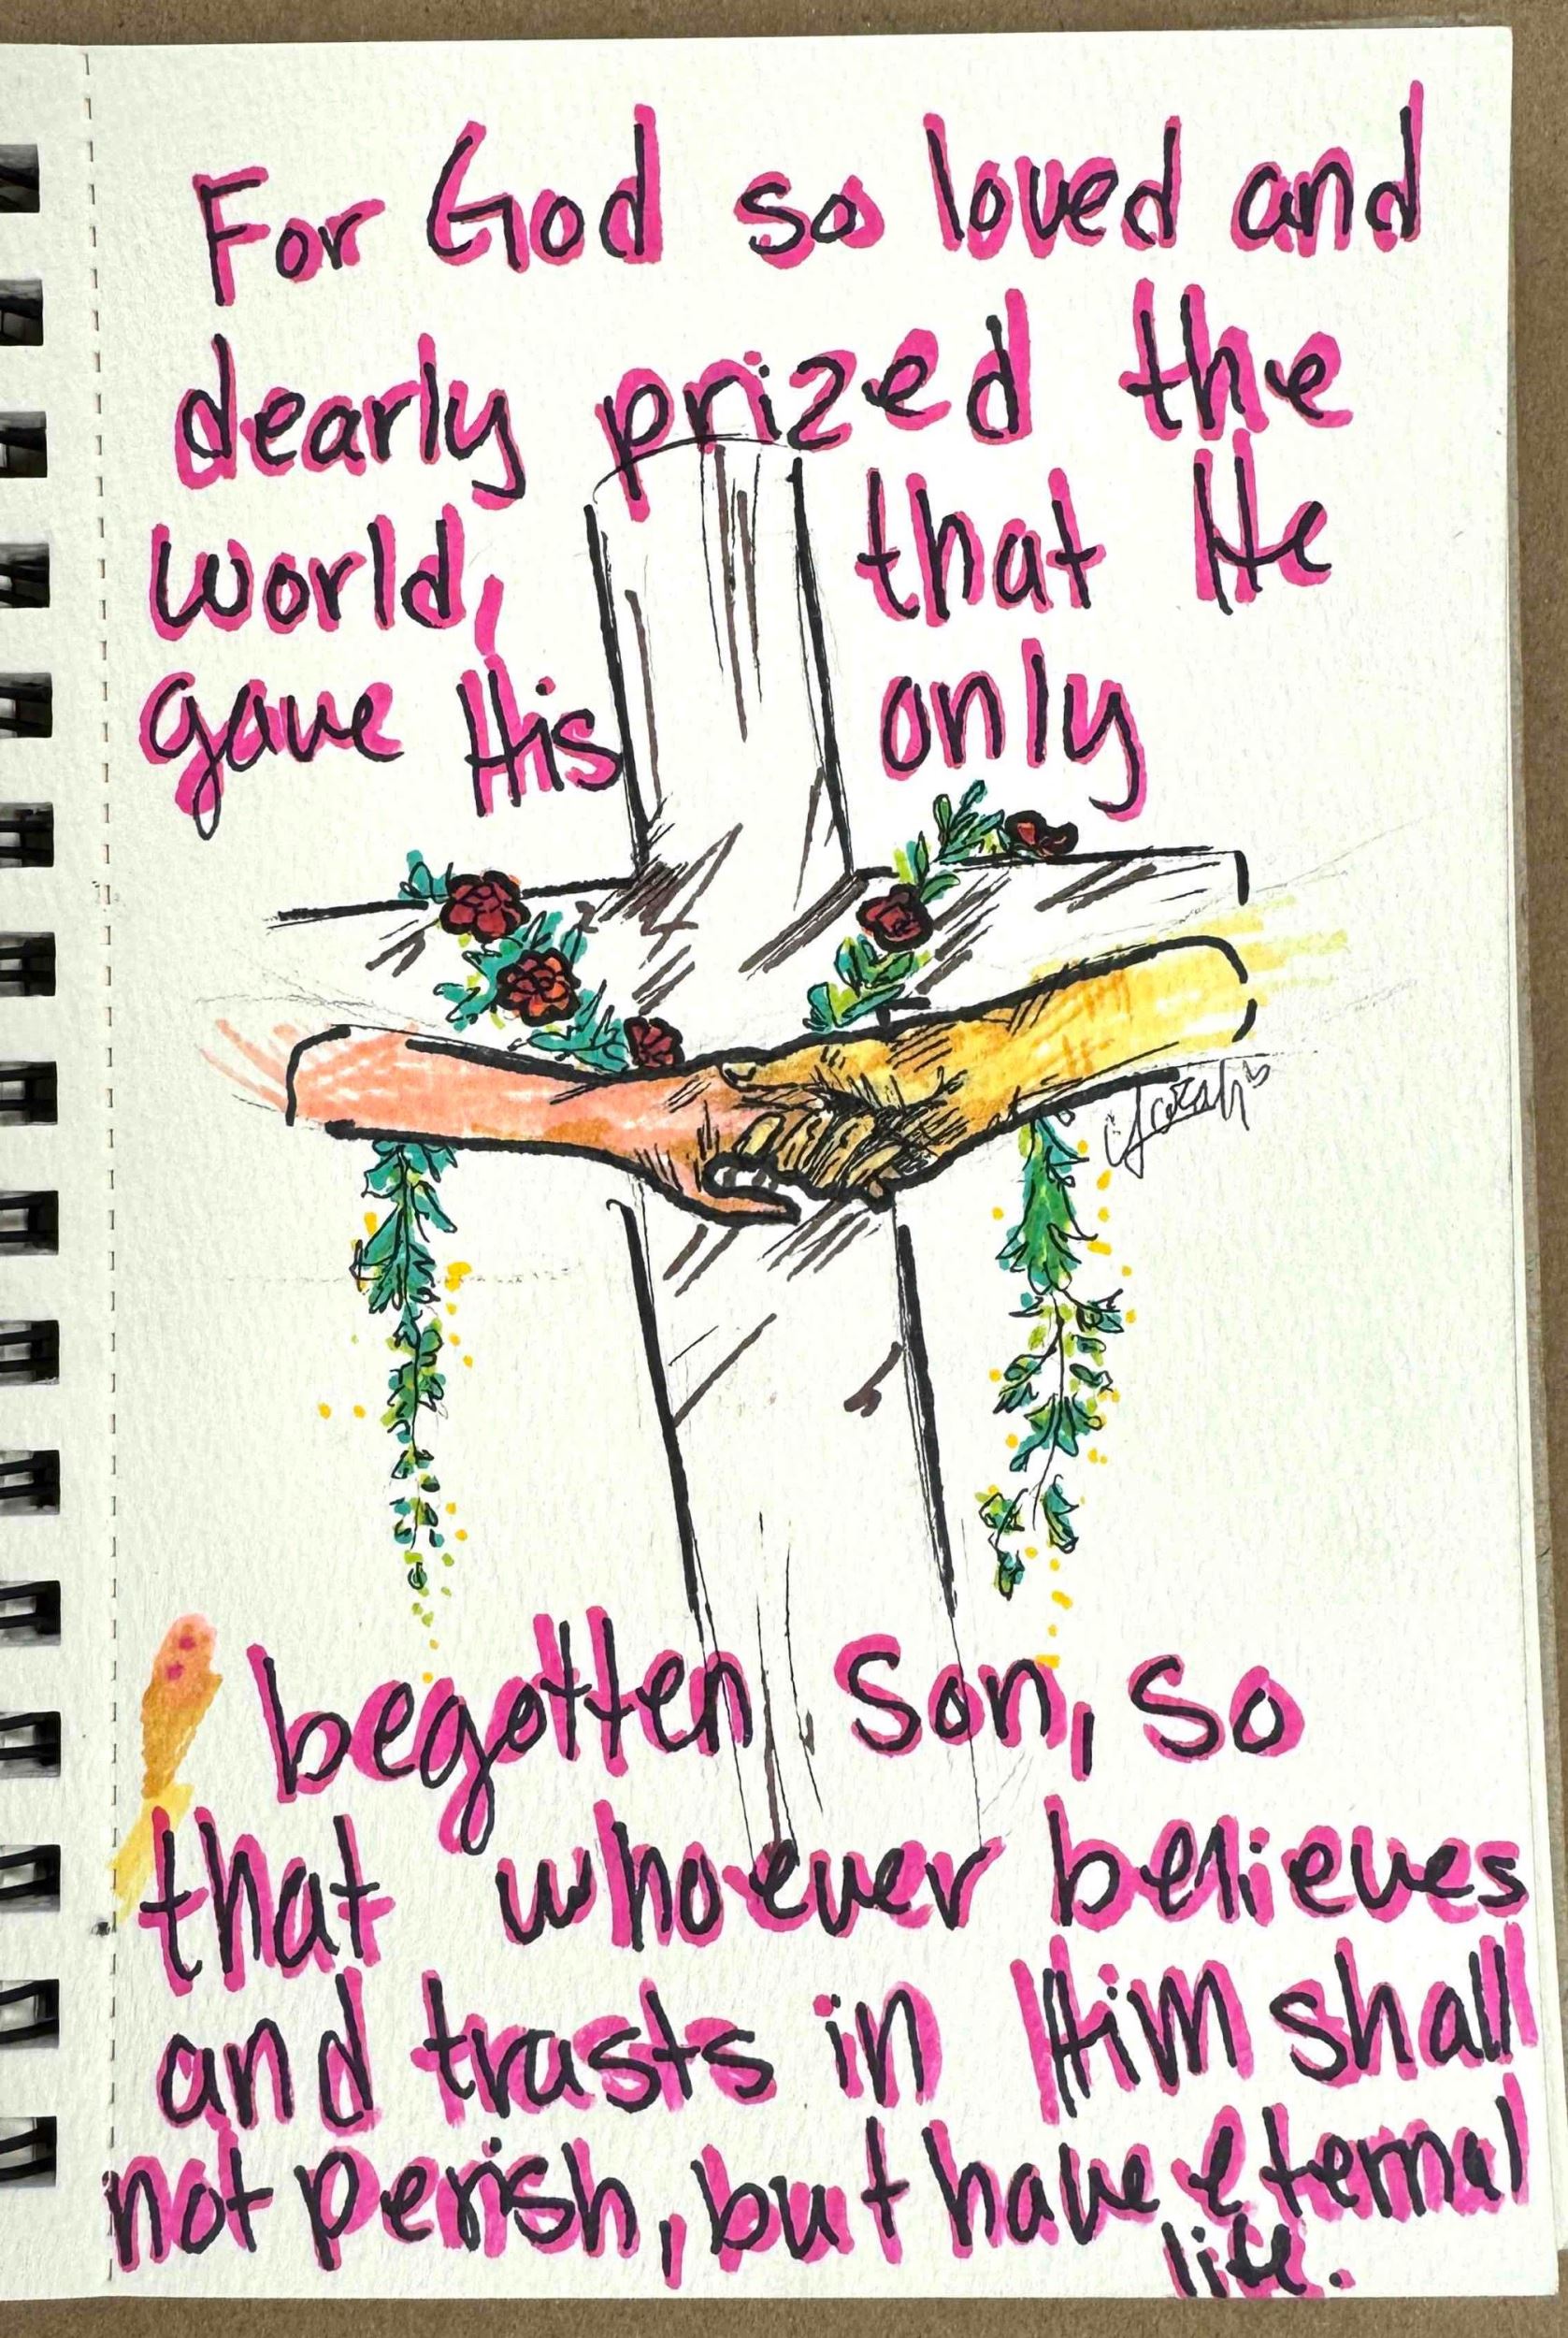 For God so loved and
dearly prized the
world, that He
gave His only
begotten Son, so
that whoever believes
and trusts in Him shall
not perish, but have eternal
life.